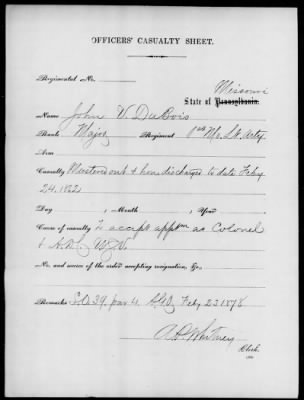 OFFICERS' CASUALTY SHEET.
Regimental No.
Missouri
State of Pennsylvania.
Name John V. DuBois
Rank Major Regiment 1st Mo. Lt. Arty
Arm
Casualty Mustered out & hon discharged to date Feby
24.
Day , Month , Year
Cause of casualty To accept apptm as Colonel
& A.D.C.
No. and source of the order accepting resignation, &c.,
Remarks S.O. 39. par 4. AGO Feby 23 1878
Whitney
Clerk.